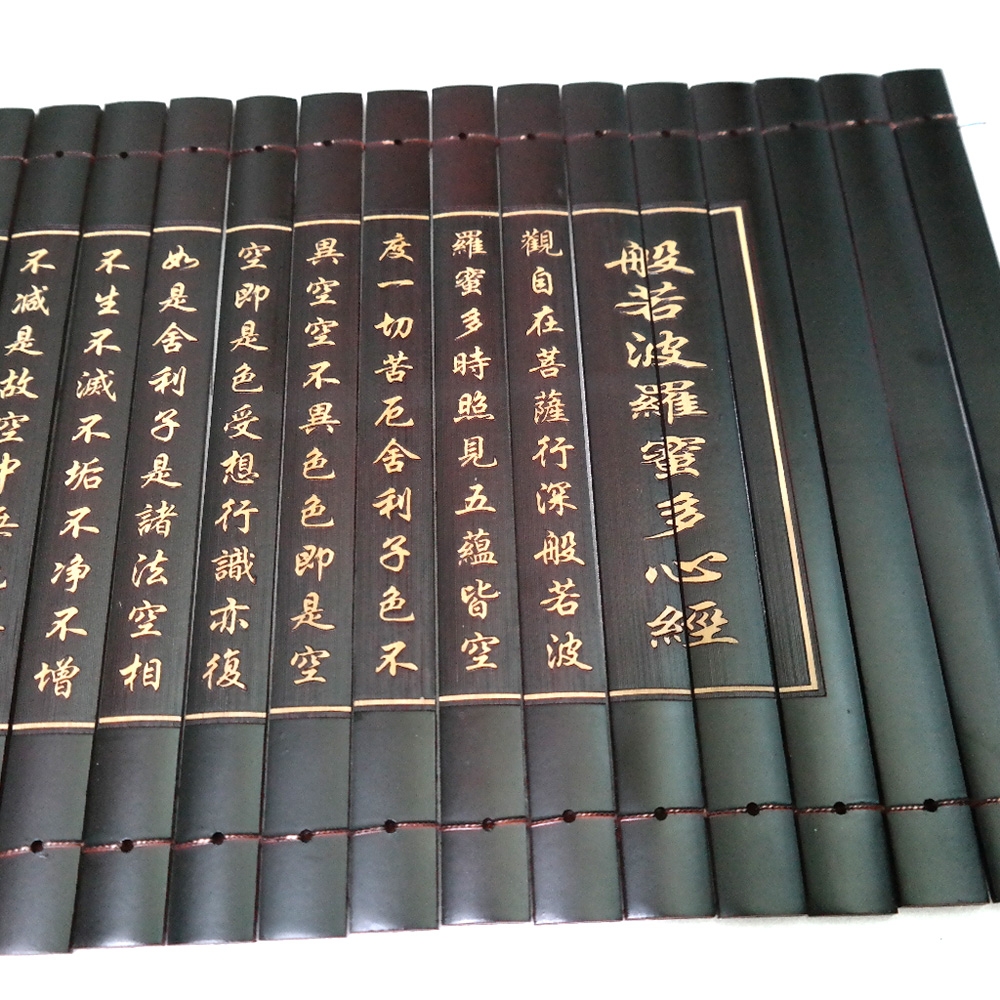 般若波羅蜜多心經
觀自在菩薩行深般若波
羅蜜多時照見五蘊皆空
度一切苦厄舍利子色不
異空空不異色色即是空
空即是色受想行識亦復
如是舍利子是諸法空相
不生不滅不垢不净不增
不減是故空中